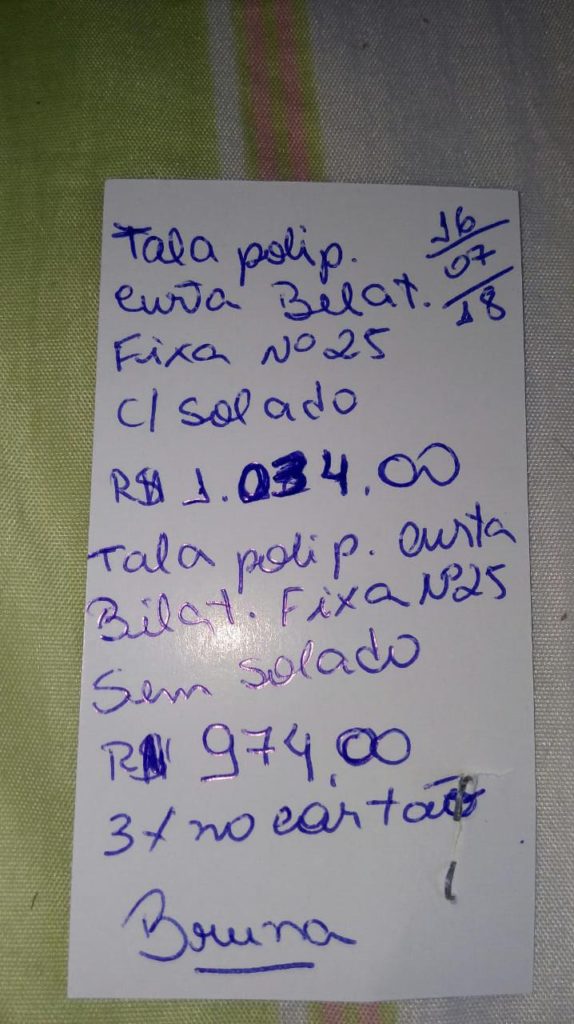 Tala polip.
curta Bilat.
Fixa Nº 25
c/ solado
R$ 1.034.00
Tala polip. curta
Bilat. Fixa Nº25
Sem solado
R$ 974,00
3x no cartão
Bruna
16
07
18